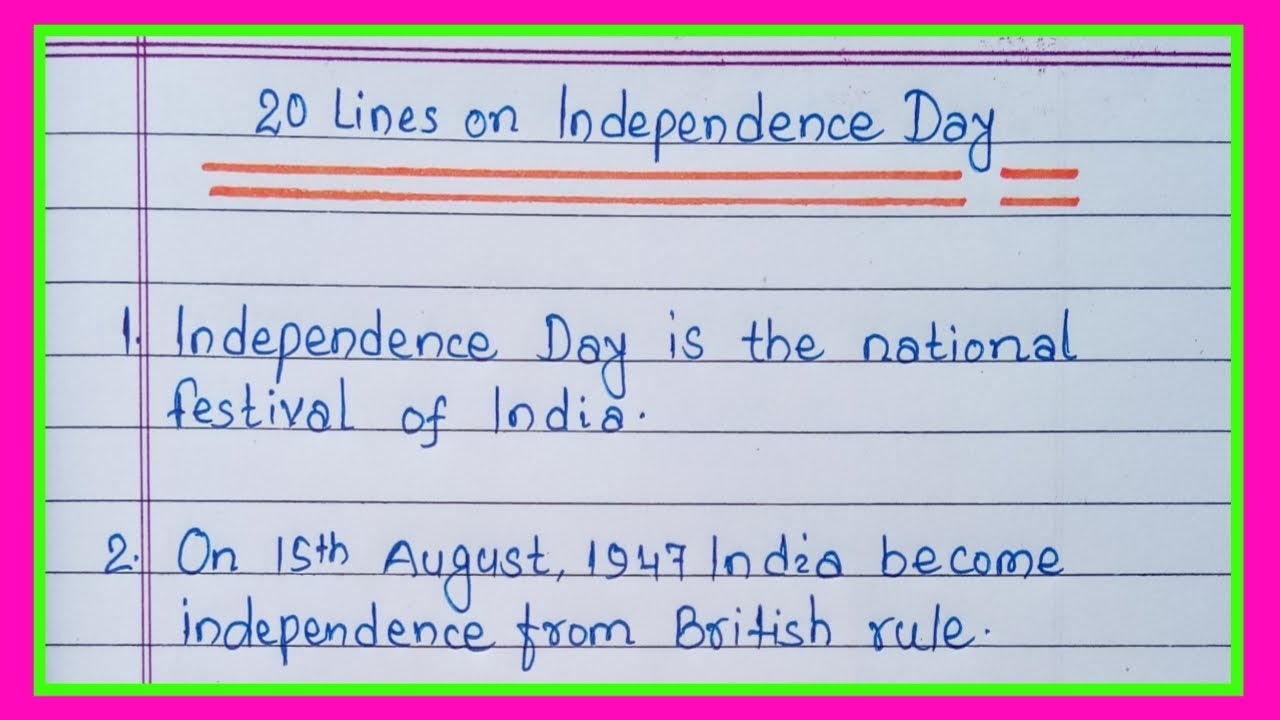 20 Lines on Independence Day
1. Independence Day is the national
festival of India.
2. On 15th August, 1947 India become
independence from British rule.